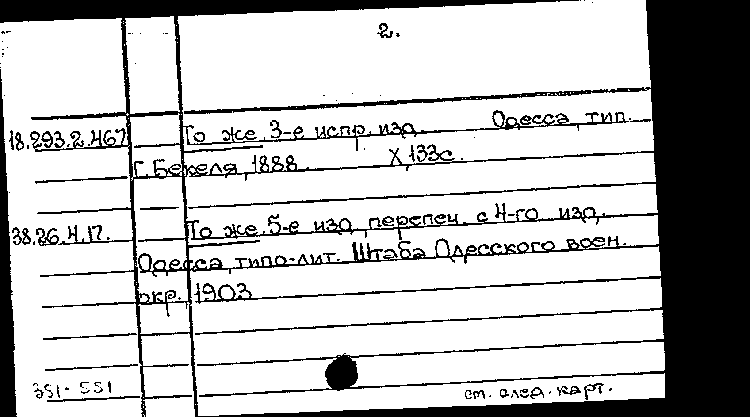 2.
18.293.2.467 То же. 3-е испр. изд. Одесса, тип.
Г. Бекеля, 1888. X, 133с.
38.26.4.17. То же. 5-е изд., перепеч. с 4-го изд.
Одесса, типо-лит. Штаба Одесского воен.
окр., 1903
351-551 см. след. карт.